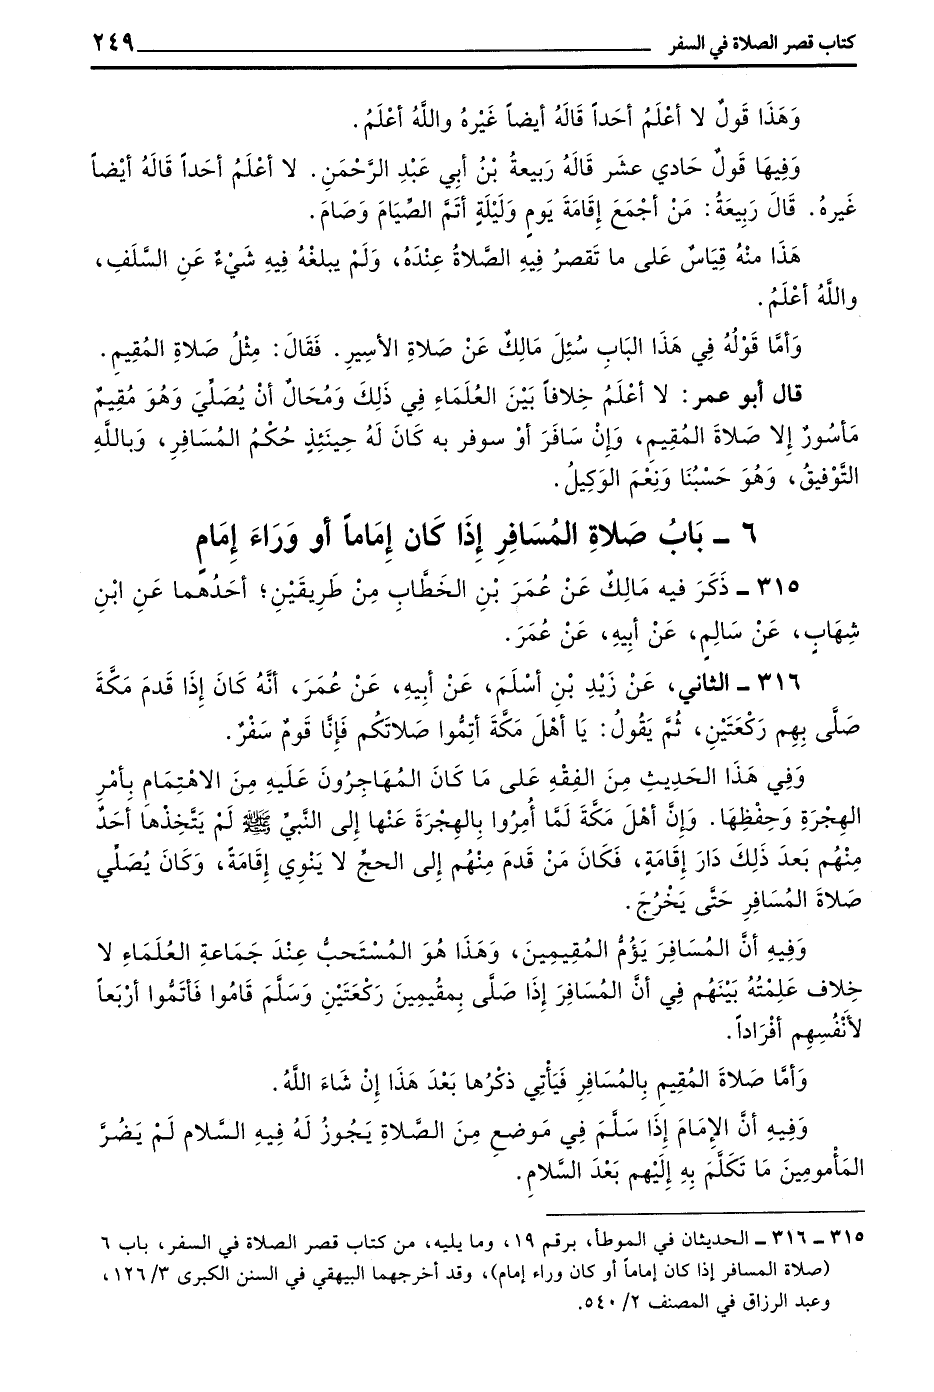 كتاب قصر الصلاة في السفر ٢٤٩
وَهَذَا قَولٌ لا أعْلَمُ أحَداً قَالَهُ أيضاً غَيْرهُ واللَّهُ أعْلَمُ.
وَفِيهَا قَولٌ حادي عشر قَالَهُ رَبيعةُ بْنُ أبي عَبْدِ الرَّحْمَنِ. لا أعْلَمُ أحداً قَالَهُ أيْضاً
غَيرهُ. قَالَ رَبِيعَةُ: مَنْ أجْمَعَ إقَامَةَ يَومٍ وَلَيْلَةٍ أتَمَّ الصِّيَامَ وَصَامَ.
هَذَا منْهُ قِيَاسٌ عَلى ما تَقصرُ فِيهِ الصَّلاةُ عِنْدَهُ، وَلَمْ يبلغْهُ فِيهِ شَيْءٌ عَنِ السَّلَفِ،
واللَّهُ أعْلَمُ.
وَأمَّا قَوْلُهُ فِي هَذَا البَابِ سُئِلَ مَالِكٌ عَنْ صَلاةِ الأسيرِ. فَقَالَ: مِثْلُ صَلاةِ المُقِيمِ.
قال أبو عمر: لا أعْلَمُ خِلافاً بَيْنَ العُلَمَاءِ فِي ذَلِكَ وَمُحَالٌ أنْ يُصَلِّيَ وَهُوَ مُقِيمٌ
مَأسُورٌ إلا صَلاةَ المُقِيمِ، وَإنْ سَافَرَ أوْ سوفر به كَانَ لَهُ حِينَئِذٍ حُكْمُ المُسَافِرِ، وَباللَّهِ
التَّوْفيقُ، وَهُوَ حَسْبُنَا وَنِعْمَ الوَكِيلُ.
٦ ـ بَابُ صَلاةِ المُسَافِرِ إذَا كَان إمَاماً أو وَرَاءَ إمَامٍ
٣١٥ ـ ذَكَرَ فيه مَالِكٌ عَنْ عُمَرَ بْنِ الخَطَّابِ مِنْ طَرِيقَيْنِ؛ أحَدُهما عَنِ ابْنِ
شِهَابٍ، عَنْ سَالِمٍ، عَنْ أبيهِ، عَنْ عُمَرَ.
٣١٦ ـ الثاني، عَنْ زَيْدِ بْنِ أسْلَمَ، عَنْ أبيهِ، عَنْ عُمَرَ، أنَّهُ كَانَ إذَا قَدمَ مَكَّةَ
صَلَّى بِهِم رَكْعَتَيْنِ، ثُمَّ يَقُولُ: يَا أهْلَ مَكَّةَ أتِمُّوا صَلاتَكُم فَإنَّا قَومٌ سَفْرٌ.
وَفِي هَذَا الحَدِيثِ مِنَ الفِقْهِ عَلى مَا كَانَ المُهَاجِرُونَ عَلَيهِ مِنَ الاهْتِمَامِ بِأمْرِ
الهِجْرَةِ وَحِفْظِهَا. وَإنَّ أهْلَ مَكَّةَ لَمَّا أُمِرُوا بِالهِجْرَةِ عَنْها إلى النَّبيِّ ﷺ لَمْ يَتَّخِذْها أحَدٌ
مِنْهُم بَعدَ ذَلِكَ دَارَ إقَامَةٍ، فَكَانَ مَنْ قَدمَ مِنْهُم إلى الحجِّ لا يَنْوِي إقَامَةً، وَكَانَ يُصَلِّي
صَلاةَ المُسَافِرِ حَتَّى يَخْرُجَ.
وَفِيهِ أنَّ المُسَافِرَ يَؤُمُّ المُقِيمِينَ، وَهَذَا هُوَ المُسْتَحبُّ عِنْدَ جَمَاعةِ العُلَمَاءِ لا
خِلاف عَلِمْتُهُ بَيْنَهُم فِي أنَّ المُسَافِرَ إذَا صَلَّى بِمقِيمِينَ رَكْعَتَيْنِ وَسَلَّمَ قَامُوا فَأتَمُّوا أرْبَعاً
لأَنْفُسِهِم أفْرَاداً.
وَأمَّا صَلاةُ المُقِيمِ بِالمُسَافِرِ فَيَأْتِي ذكْرُها بَعْدَ هَذَا إنْ شَاءَ اللَّهُ.
وَفِيهِ أنَّ الإمَامَ إذَا سَلَّمَ فِي مَوضعٍ مِنَ الصَّلاةِ يَجُوزُ لَهُ فِيهِ السَّلام لَمْ يَضُرَّ
المَأْمومِينَ مَا تَكَلَّمَ بِهِ إلَيْهِم بَعْدَ السَّلامِ.
٣١٥ ـ ٣١٦ ـ الحديثان في الموطأ، برقم ١٩، وما يليه، من كتاب قصر الصلاة في السفر، باب ٦
(صلاة المسافر إذا كان إماماً أو كان وراء إمام)، وقد أخرجهما البيهقي في السنن الكبرى ٣/١٢٦،
وعبد الرزاق في المصنف ٢/ ٥٤٠.